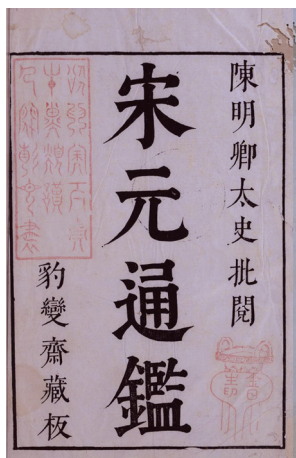 陳明卿太史批閱
宋元通鑑
豹變齋藏板